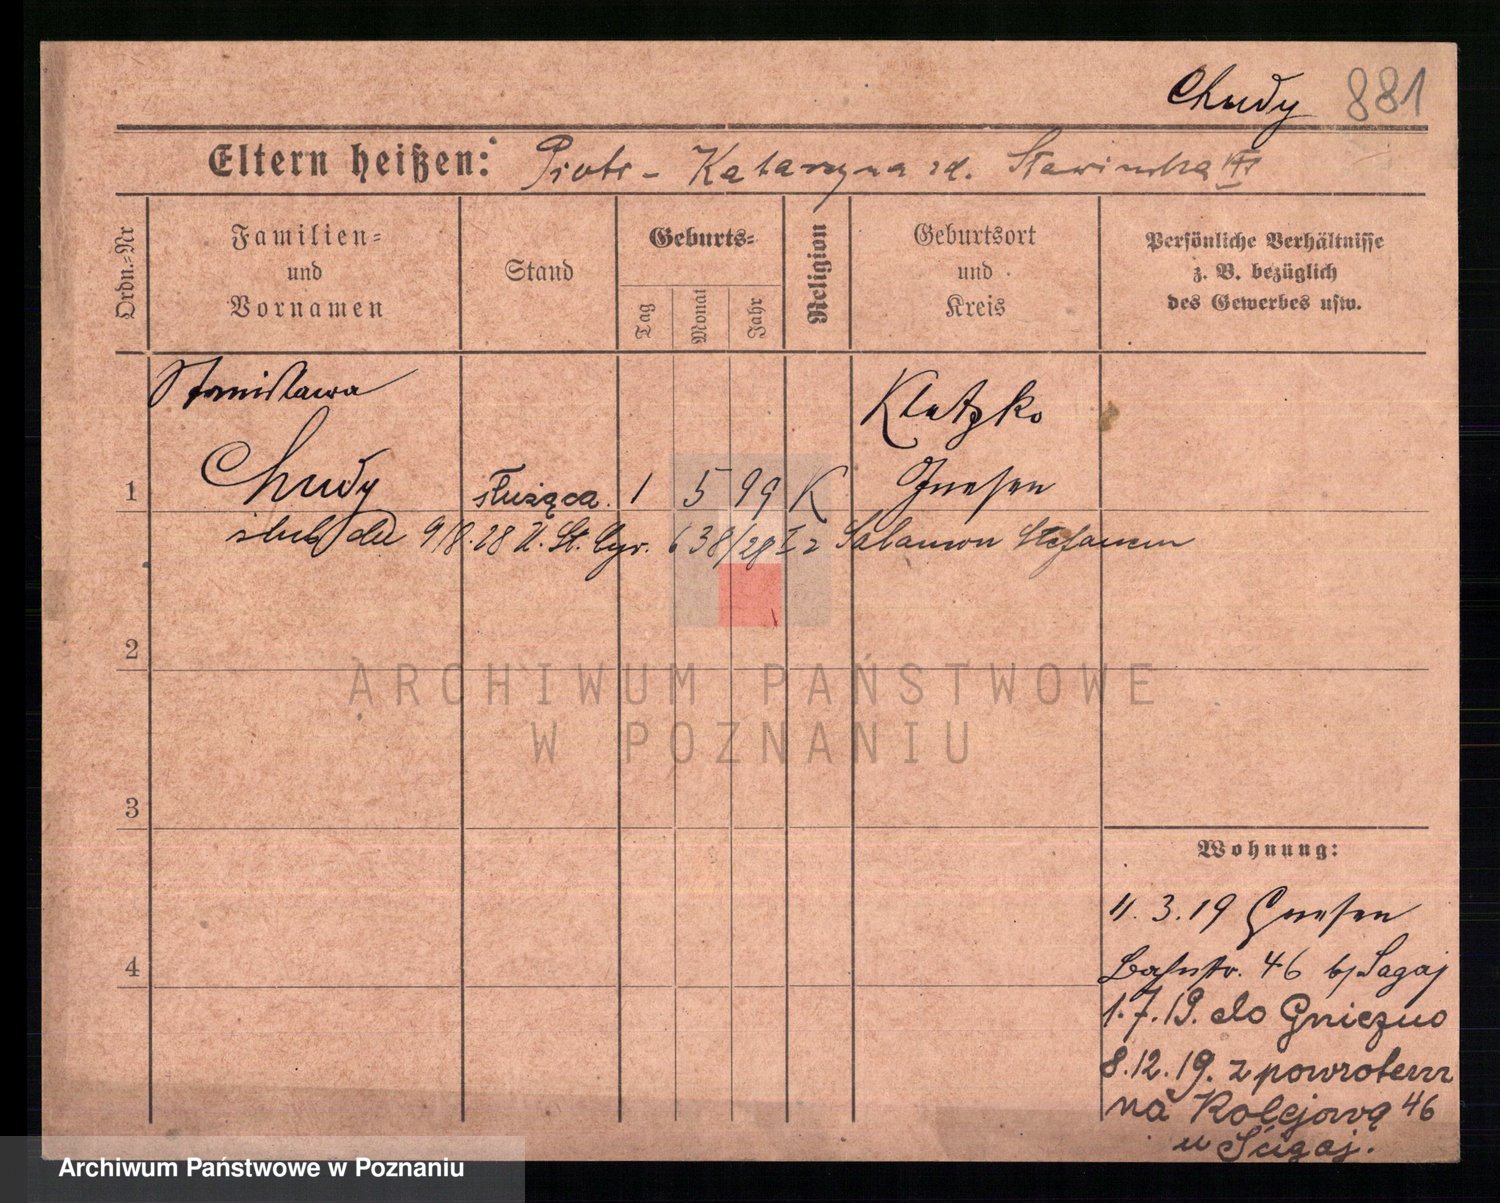 Chudy 881
Eltern heißen: Piotr - Katarzyna zd. Sławińska
Ordn.-Nr
Familien-
und
Vornamen
Stand
Geburts-
Tag
Monat
Jahr
Religion
Geburtsort
und
Kreis
Persönliche Verhältnisse
z. B. bezüglich
des Gewerbes usw.
Stanisława Kletzko
1 Chudy służąca. 1 5 99 K Gnesen
ślub dn 9/8.28 U. St. Cyw. 638/28 z Salamon Stefanem
2
3
4
Wohnung:
11.3.19 Gnesen
Bahnstr. 46 b/
1.7.19. do Gniezno
8.12.19. z powrotem
na Kolejową 46
u
ARCHIWUM PAŃSTWOWE
W POZNANIU
Archiwum Państwowe w Poznaniu